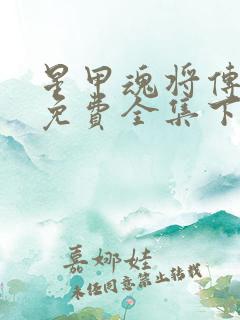 星甲魂将傳
免費全集下
嘉娜娃
未经同意禁止转载